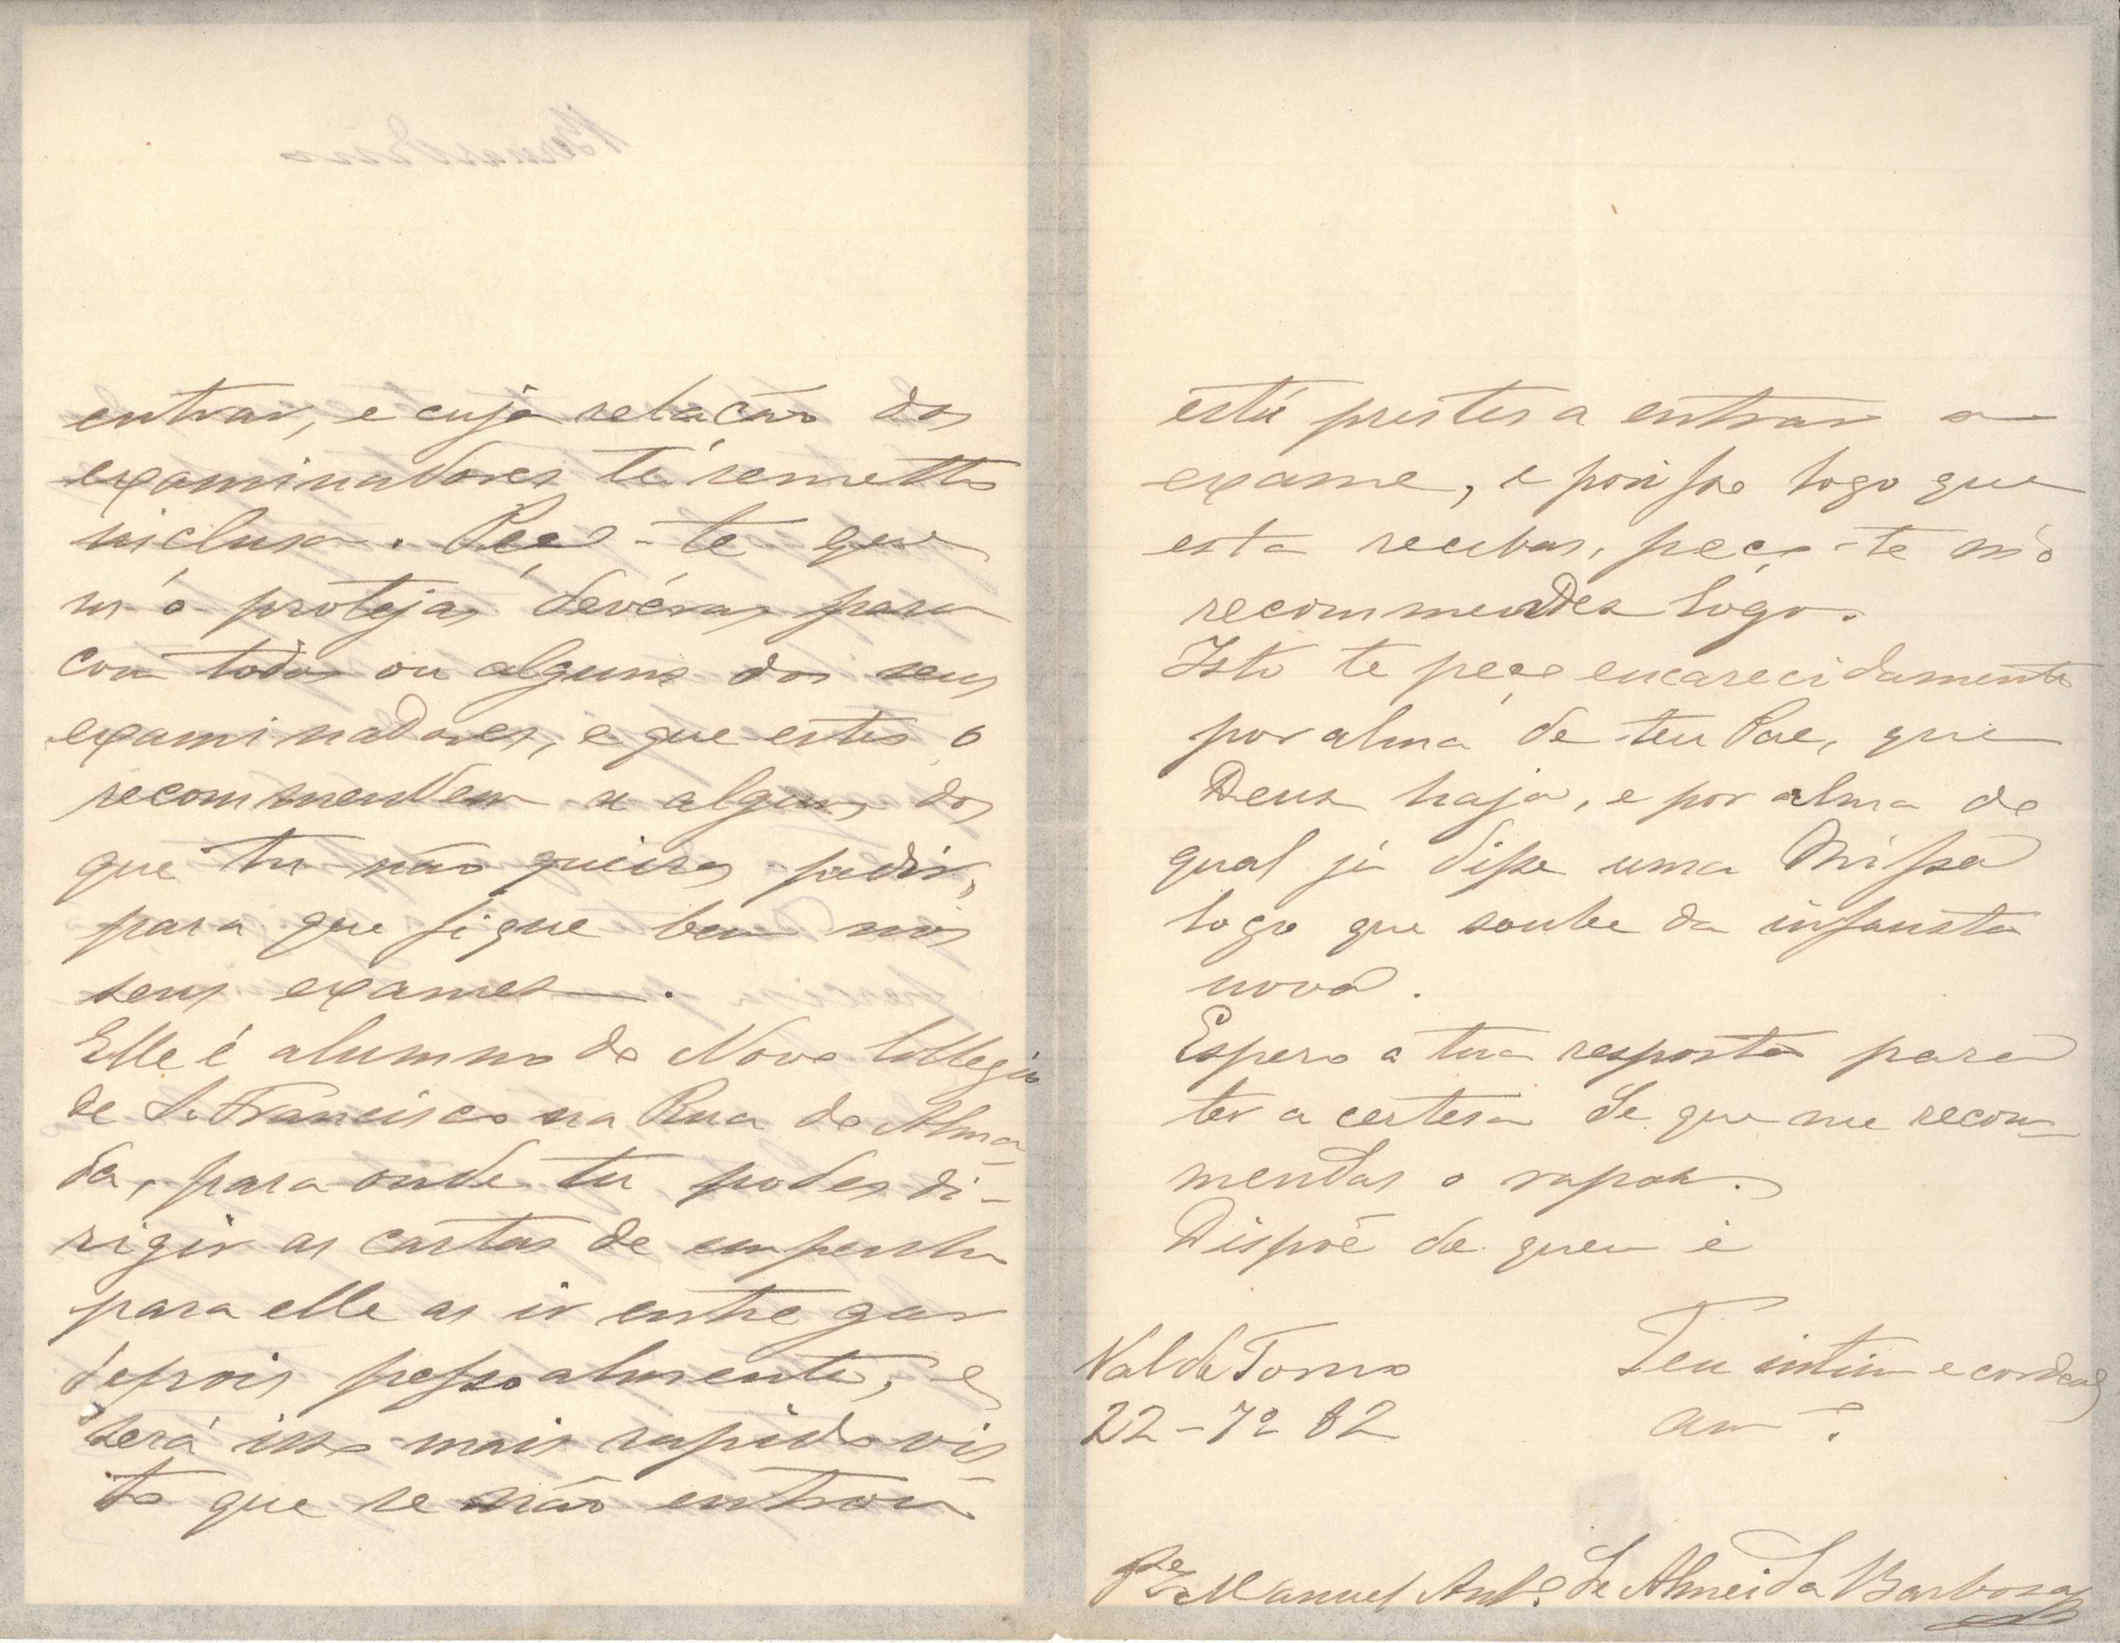 entrar, e cuja relação dos
examinadores te remetto
inclusa. Peço-te que
m'o protejas devéras para
com todos ou alguns dos seus
examinadores, e que estes o
recommendem a alguns dos
que tu não queiras pedir,
para que fique bem nos
seus exames.
Elle é alumno do Novo Collegio
de S. Francisco na Rua do Alma-
da, para onde tu podes di-
rigir as cartas de empenho
para elle as ir entregar
depois pessoalmente, e
será isso mais rapido vis-
to que se não entrou
está prestes a entrar a
exame, e por isso logo que
esta recebas, peço-te m'o
recommendes lógo.
Isto te peço encarecidamente
por alma de teu Pae, que
Deus haja, e por alma do
qual já disse uma Missa
logo que soube da infausta
nova.
Espero a tua resposta para
ter a certesa de que me recom-
mendas o rapaz.
Dispõe de quem é
Teu intimo e cordeal
am.º
Val da Torno
22-7º 82
Pe. Manuel Antº. de Almeida Barbosa